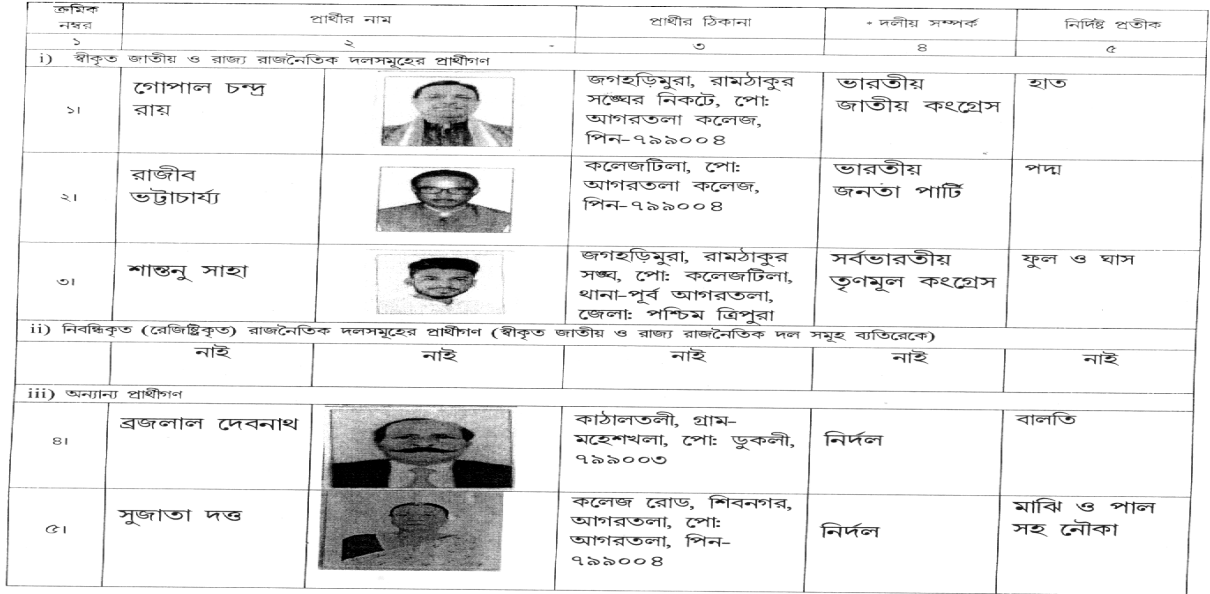 ক্রমিক নম্বর
প্রার্থীর নাম
প্রার্থীর ঠিকানা
+ দলীয় সম্পর্ক
নির্দিষ্ট প্রতীক
১
২
৩
৪
৫
i) স্বীকৃত জাতীয় ও রাজ্য রাজনৈতিক দলসমূহের প্রার্থীগণ
১।
গোপাল চন্দ্র
রায়
জগহড়িমুরা, রামঠাকুর
সঙ্ঘের নিকটে, পো:
আগরতলা কলেজ,
পিন-৭৯৯০০৪
ভারতীয়
জাতীয় কংগ্রেস
হাত
২।
রাজীব
ভট্টাচার্য্য
কলেজটিলা, পো:
আগরতলা কলেজ,
পিন-৭৯৯০০৪
ভারতীয়
জনতা পার্টি
পদ্ম
৩।
শান্তনু সাহা
জগহড়িমুরা, রামঠাকুর
সঙ্ঘ, পো: কলেজটিলা,
থানা-পূর্ব আগরতলা,
জেলা: পশ্চিম ত্রিপুরা
সর্বভারতীয়
তৃণমূল কংগ্রেস
ফুল ও ঘাস
ii) নিবন্ধিকৃত (রেজিষ্ট্রিকৃত) রাজনৈতিক দলসমূহের প্রার্থীগণ (স্বীকৃত জাতীয় ও রাজ্য রাজনৈতিক দল সমূহ ব্যতিরেকে)
নাই
নাই
নাই
নাই
নাই
iii) অন্যান্য প্রার্থীগণ
৪।
ব্রজলাল দেবনাথ
কাঠালতলী, গ্রাম-
মহেশখলা, পো: ডুকলী,
৭৯৯০০৩
নির্দল
বালতি
৫।
সুজাতা দত্ত
কলেজ রোড, শিবনগর,
আগরতলা, পো:
আগরতলা, পিন-
৭৯৯০০৪
নির্দল
মাঝি ও পাল
সহ নৌকা